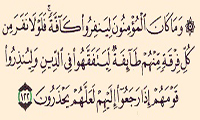 ۞ وَمَا كَانَ الْمُؤْمِنُونَ لِيَنفِرُوا كَافَّةً ۚ فَلَوْلَا نَفَرَ مِن
كُلِّ فِرْقَةٍ مِّنْهُمْ طَائِفَةٌ لِّيَتَفَقَّهُوا فِي الدِّينِ وَلِيُنذِرُوا
قَوْمَهُمْ إِذَا رَجَعُوا إِلَيْهِمْ لَعَلَّهُمْ يَحْذَرُونَ ١٢٢